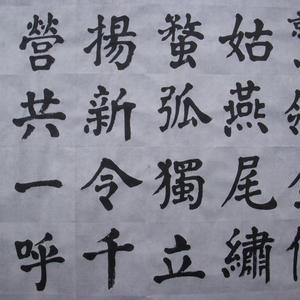 姑燕尾繡
蝥弧獨立
揚新令千
營共一呼